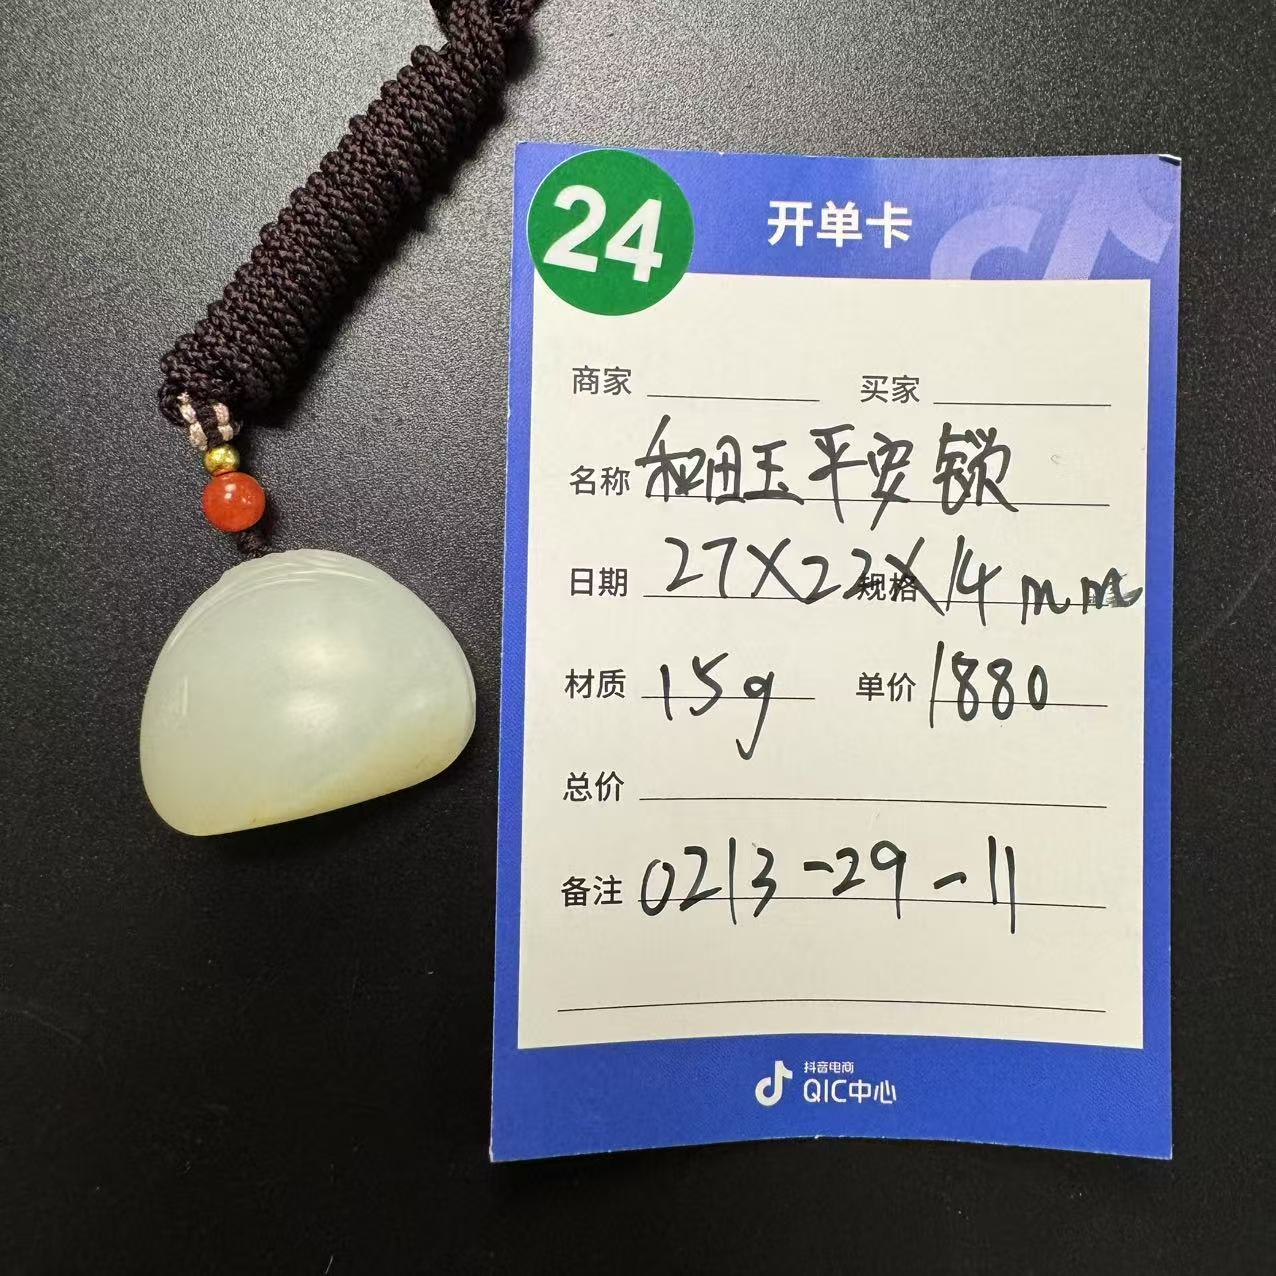 24
开单卡
商家 买家
名称 和田玉平安锁
日期 27X22X14mm 规格
材质 15g 单价 1880
总价
备注 0213-29-11
抖音电商
QIC中心